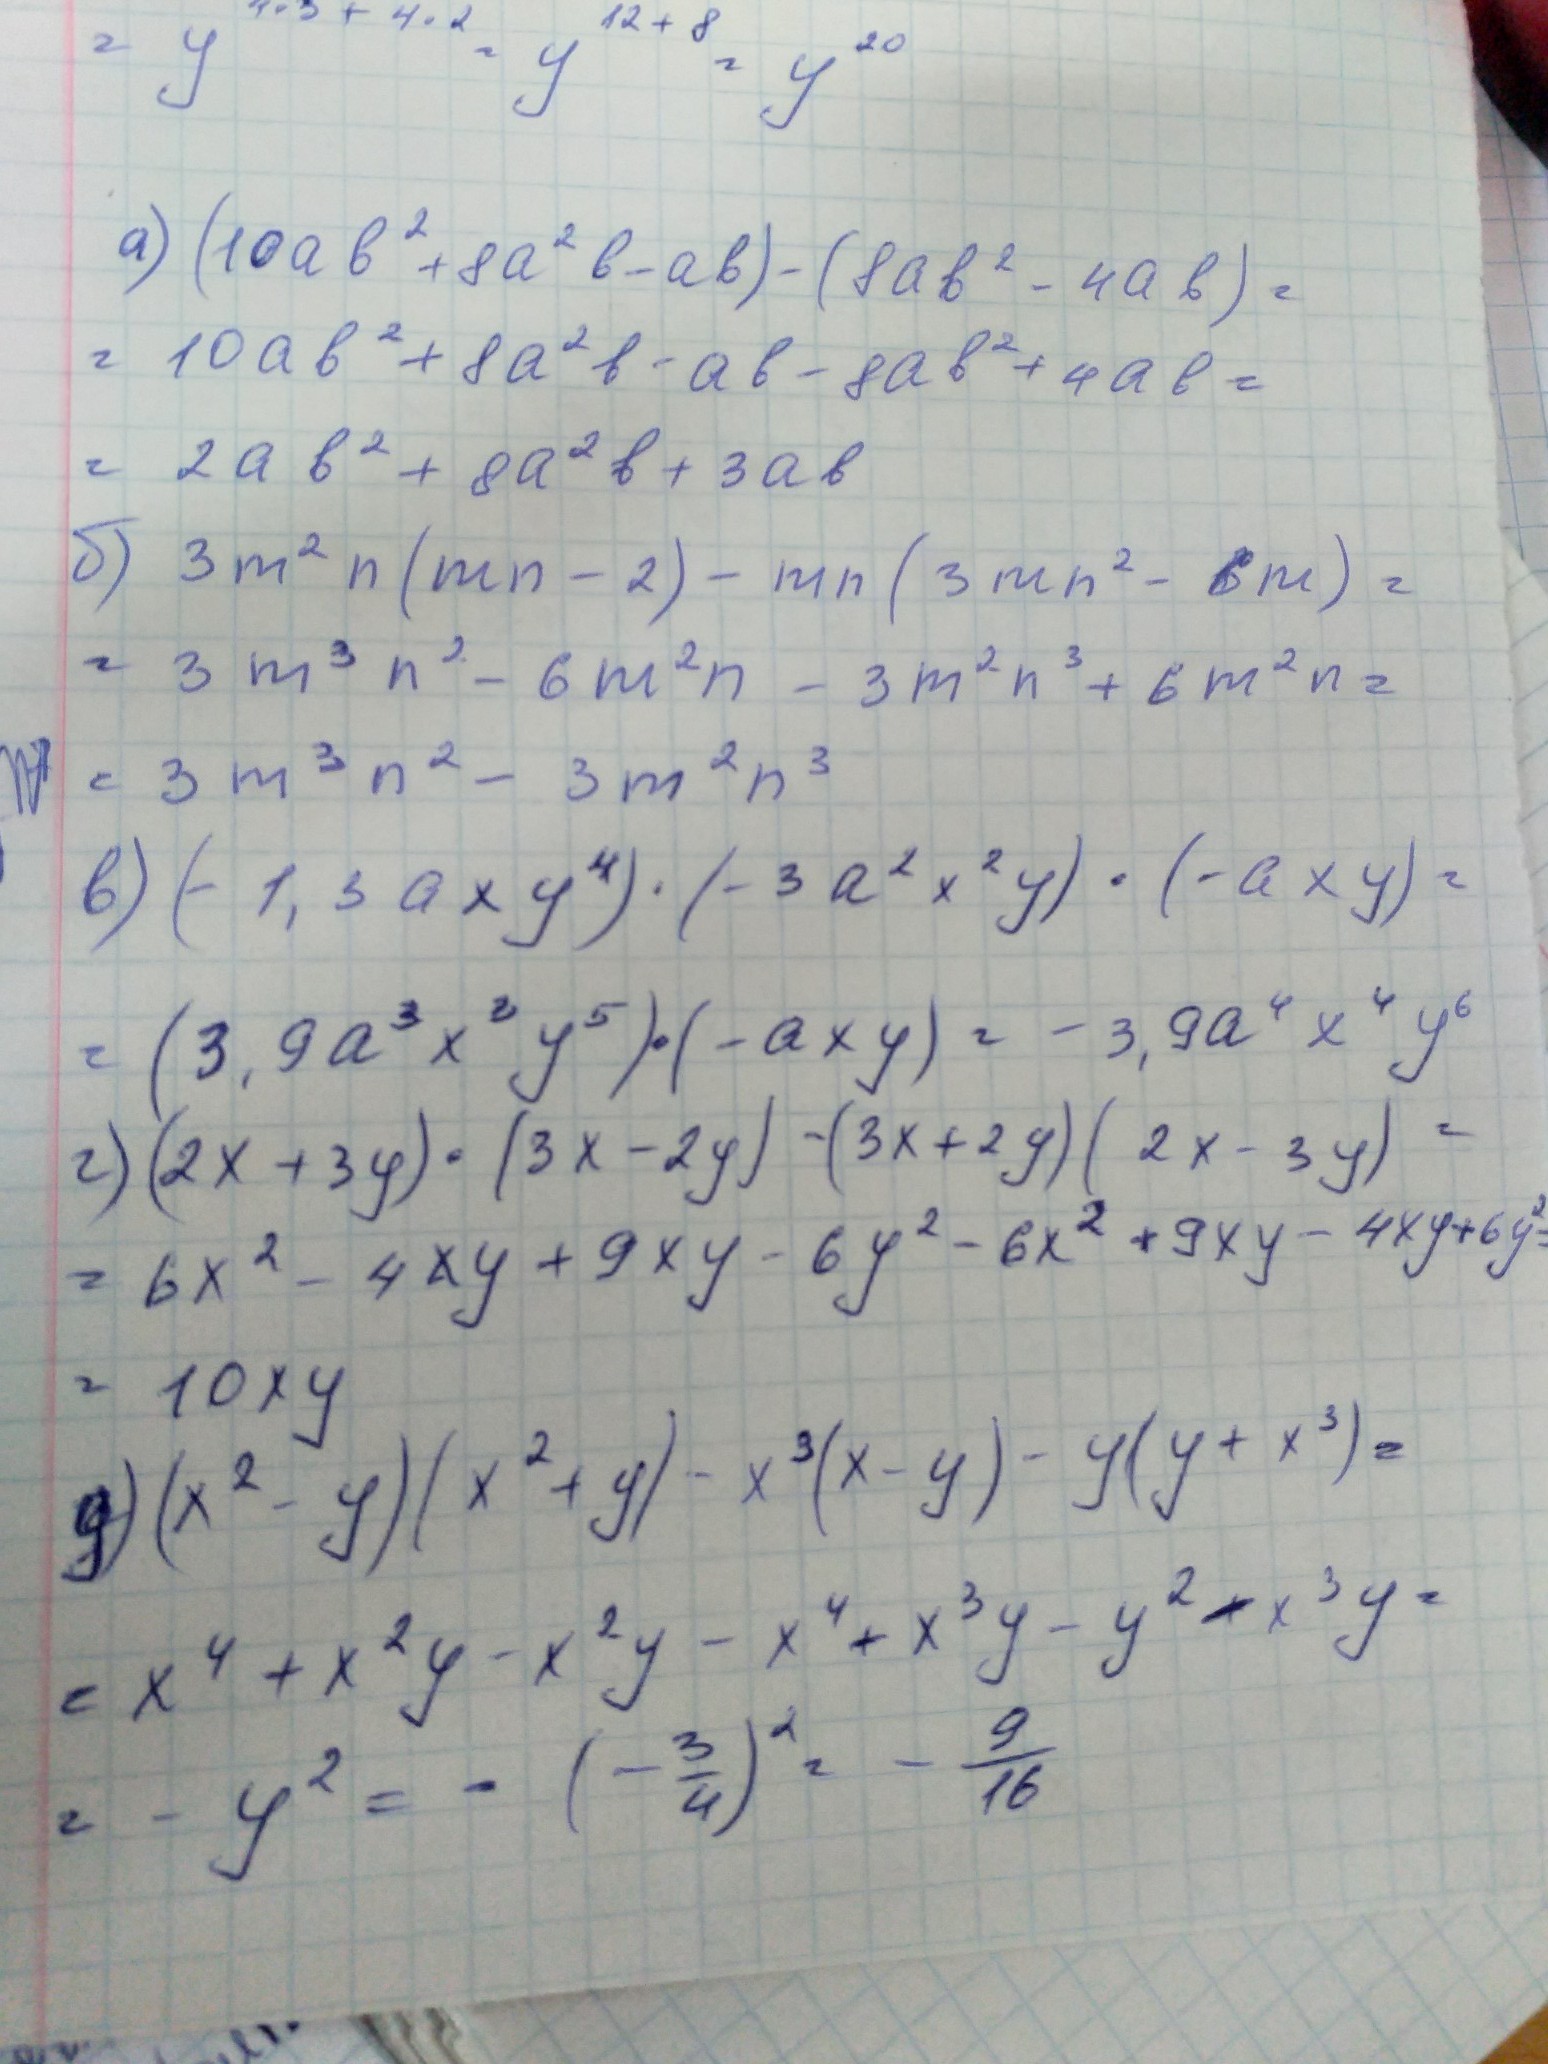 = y^{4·3 + 4·2} = y^{12+8} = y^{20}
а) (10ab² + 8a²b - ab) - (8ab² - 4ab) =
= 10ab² + 8a²b - ab - 8ab² + 4ab =
= 2ab² + 8a²b + 3ab
б) 3m²n(mn - 2) - mn(3mn² - 6m) =
= 3m³n² - 6m²n - 3m²n³ + 6m²n =
= 3m³n² - 3m²n³
в) (-1,3axy⁴)·(-3a²x²y)·(-axy) =
= (3,9a³x³y⁵)·(-axy) = -3,9a⁴x⁴y⁶
г) (2x + 3y)·(3x - 2y) - (3x + 2y)(2x - 3y) =
= 6x² - 4xy + 9xy - 6y² - 6x² + 9xy - 4xy + 6y² =
= 10xy
д) (x² - y)(x² + y) - x³(x - y) - y(y + x³) =
= x⁴ + x²y - x²y - x⁴ + x³y - y² - x³y =
= -y² = -(-3/4)² = -9/16